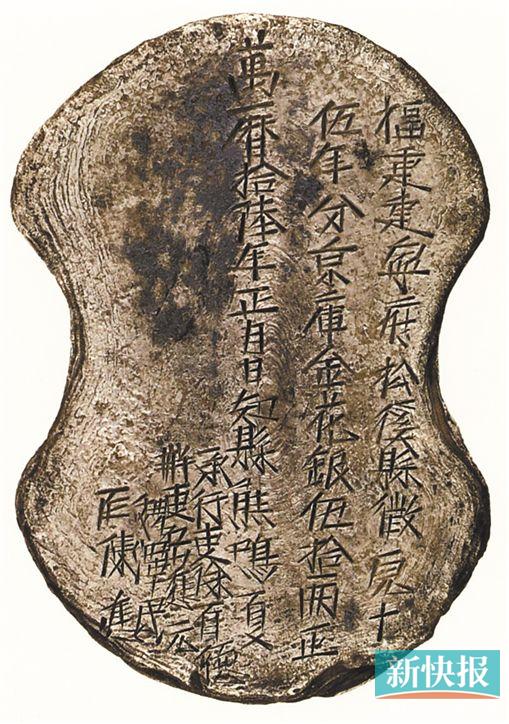 福建建寧府松溪縣徵完十
伍年分京庫金花銀伍拾兩正
萬曆拾陸年正月日知縣熊鳴夏
承行吏
匠陳進
新快报